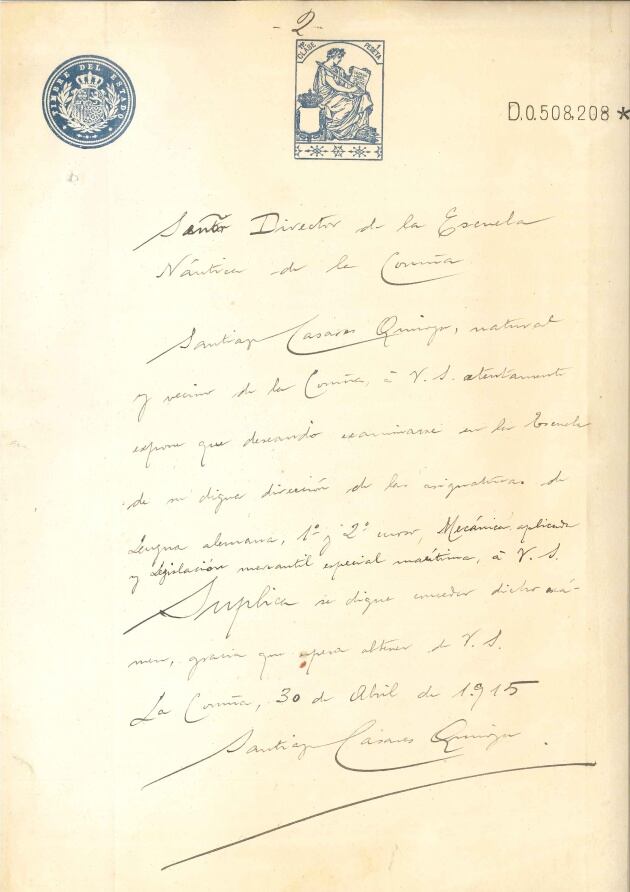 - 2 -
TIMBRE DEL ESTADO
11ª CLASE
1 PESETA
D.0.508.208 *
Señor Director de la Escuela
Náutica de la Coruña
Santiago Casares Quiroga, natural
y vecino de la Coruña, á V. S. atentamente
expone que deseando examinarse en la Escuela
de su digna dirección de las asignaturas de
Lengua alemana, 1º y 2º curso, Mecánica aplicada
y Legislación mercantil especial marítima, á V. S.
Suplica se digne conceder dicho exá-
men, gracia que espera obtener de V. S.
La Coruña, 30 de Abril de 1.915
Santiago Casares Quiroga